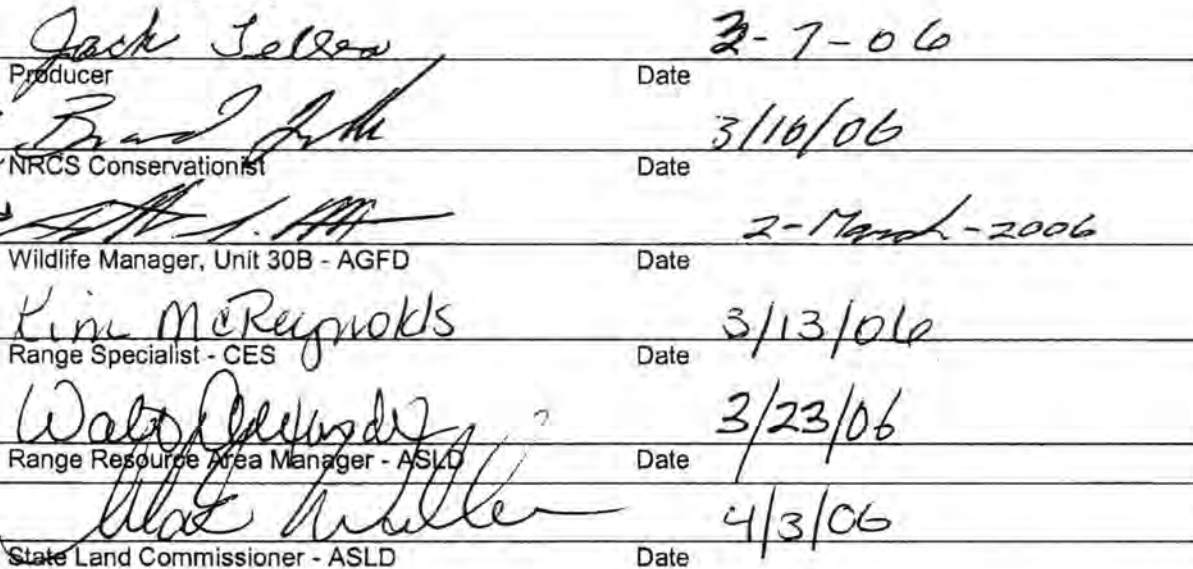 Jack 3-7-06
Producer Date
3/10/06
NRCS Conservationist Date
2-March-2006
Wildlife Manager, Unit 30B - AGFD Date
Kim McReynolds 3/13/06
Range Specialist - CES Date
3/23/06
Range Resource Area Manager - ASLD Date
4/3/06
State Land Commissioner - ASLD Date